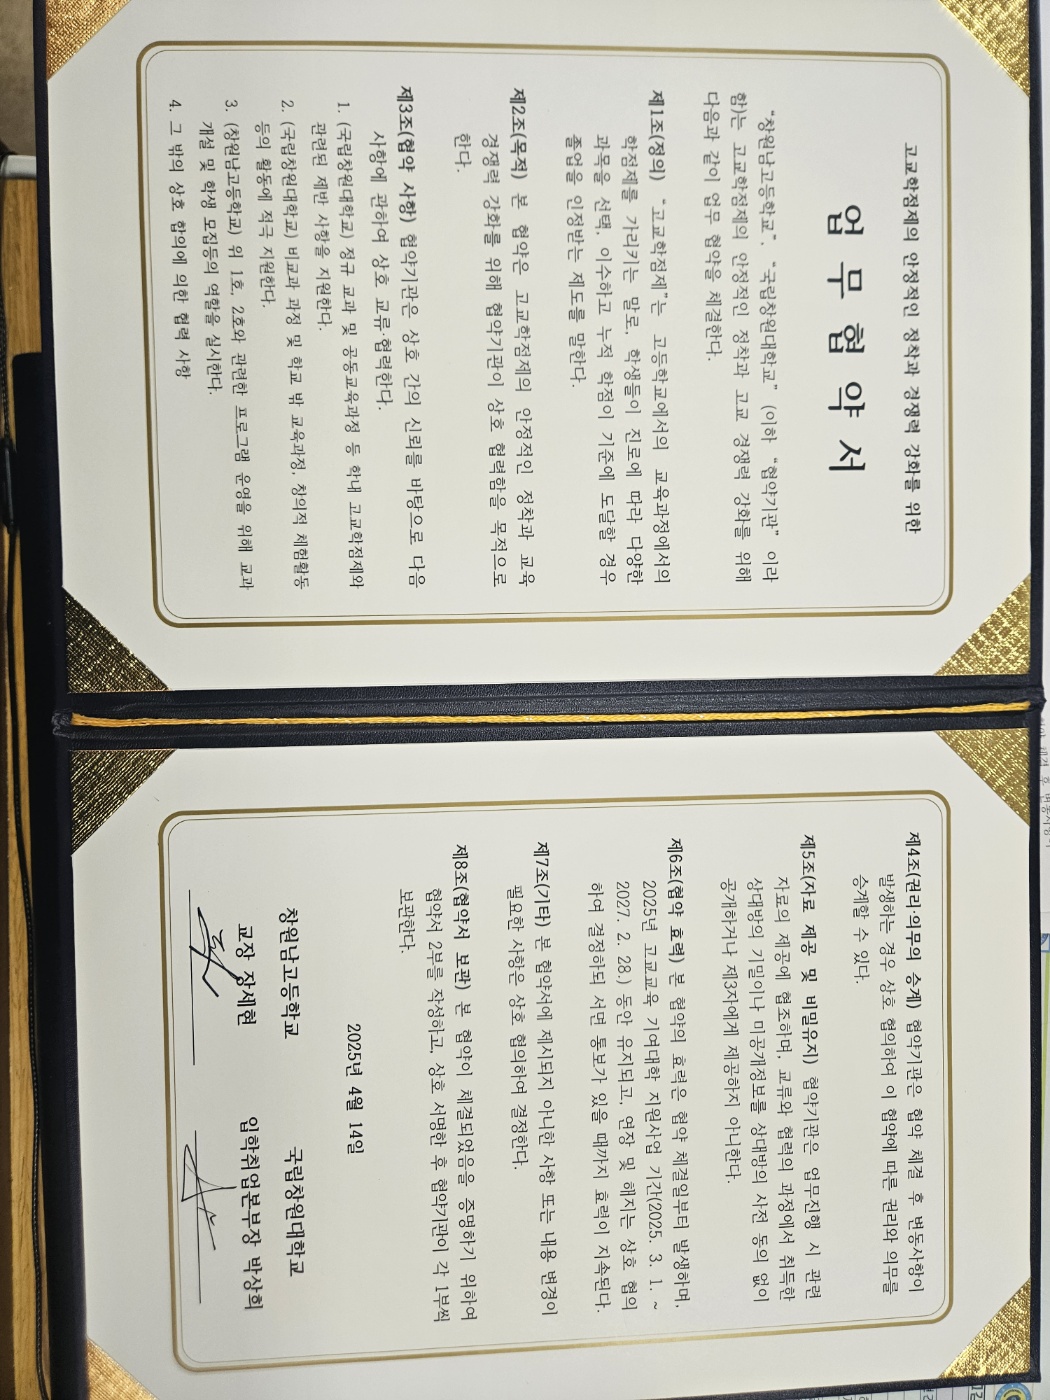 고교학점제의 안정적인 정착과 경쟁력 강화를 위한
업 무 협 약 서
"창원남고등학교", "국립창원대학교" (이하 "협약기관" 이라
함)는 고교학점제의 안정적인 정착과 고교 경쟁력 강화를 위해
다음과 같이 업무 협약을 체결한다.
제1조(정의) "고교학점제"는 고등학교에서의 교육과정에서의
학점제를 가리키는 말로, 학생들이 진로에 따라 다양한
과목을 선택, 이수하고 누적 학점이 기준에 도달할 경우
졸업을 인정받는 제도를 말한다.
제2조(목적) 본 협약은 고교학점제의 안정적인 정착과 교육
경쟁력 강화를 위해 협약기관이 상호 협력함을 목적으로
한다.
제3조(협약 사항) 협약기관은 상호 간의 신뢰를 바탕으로 다음
사항에 관하여 상호 교류·협력한다.
1. (국립창원대학교) 정규 교과 및 공동교육과정 등 학내 고교학점제와
관련된 제반 사항을 지원한다.
2. (국립창원대학교) 비교과 과정 및 학교 밖 교육과정, 창의적 체험활동
등의 활동에 적극 지원한다.
3. (창원남고등학교) 위 1호, 2호와 관련한 프로그램 운영을 위해 교과
개설 및 학생 모집등의 역할을 실시한다.
4. 그 밖의 상호 합의에 의한 협력 사항
제4조(권리·의무의 승계) 협약기관은 협약 체결 후 변동사항이
발생하는 경우 상호 협의하여 이 협약에 따른 권리와 의무를
승계할 수 있다.
제5조(자료 제공 및 비밀유지) 협약기관은 업무진행 시 관련
자료의 제공에 협조하며, 교류와 협력의 과정에서 취득한
상대방의 기밀이나 미공개정보를 상대방의 사전 동의 없이
공개하거나 제3자에게 제공하지 아니한다.
제6조(협약 효력) 본 협약의 효력은 협약 체결일부터 발생하며,
2025년 고교교육 기여대학 지원사업 기간(2025. 3. 1. ~
2027. 2. 28.) 동안 유지되고, 연장 및 해지는 상호 협의
하여 결정하되 서면 통보가 있을 때까지 효력이 지속된다.
제7조(기타) 본 협약서에 제시되지 아니한 사항 또는 내용 변경이
필요한 사항은 상호 협의하여 결정한다.
제8조(협약서 보관) 본 협약이 체결되었음을 증명하기 위하여
협약서 2부를 작성하고, 상호 서명한 후 협약기관이 각 1부씩
보관한다.
2025년 4월 14일
창원남고등학교 국립창원대학교
교장 장세현 입학취업본부장 박상희